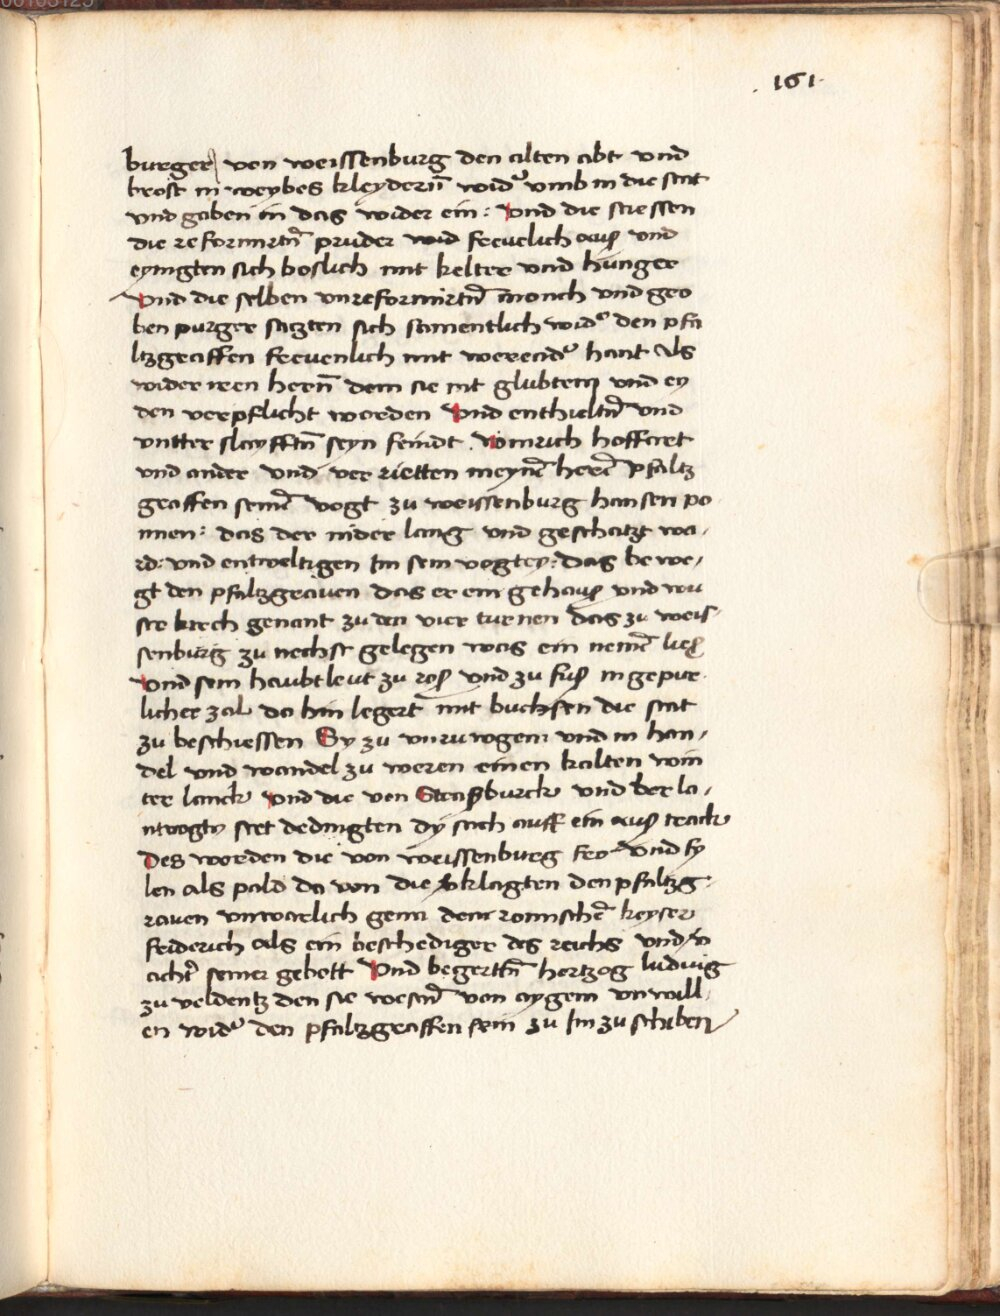 161
burger von weissenburg den alten abt vnd
brost in weybes kleydern̄ widᵉ vmb in die stat
vnd gaben in das wider ein: Vnd die stiessen
die reformirtn̄ pruder wid frevelich auß vnd
eynigten sich boslich mit kelter vnd hunger
Vnd die selben vnreformirtn̄ monch vnd gro
ben purger saczten sich samentlich widᵉ den pfa
ltzgraffen frevenlich mit werendᵉ hant als
wider iren hern̄ dem sie mit glubten vnd ey
den verpflicht worden Vnd enthieltn̄ vnd
vntter slayfftn̄ seyn feindt. Weinrich hoffart
vnd ander vnd ver rietten meynē herē pfaltz
graffen seinē vogt zu weissenburg hansen po
men: das der nider lang vnd geschatzt wa,
rd: vnd entweltigen Im sein vogtey: das be we,
gt den pfaltzgraven das er ein gehauß vnd wu
ste kirch genant zu den vier turnen das zu weis,
senburg zu nechst gelegen was ein nemē ließ
Vnd sein haubtleut zu roß vnd zu fuß in gepur
licher zal do hin legert mit buchsen die stat
zu beschiessen Sy zu vnruwogen vnd in han,
del vnd wandel zu weren einen kalten win
ter lanck Vnd die von Straßburck vnd der la,
ntvogty stet dedingten dy sach auff ein auß track
Des worden die von weissenburg fro vnd fy
len als pald do von die vklagten den pfaltzg
raven vnwarlich genn dem romischē keyser
friderich als ein beschediger des reichs vnd v
achtᵉ seiner gebott Vnd begerttn̄ hertzog ludwig
zu veldentz den sie westn̄ von aygem vnwill,
en widᵉ den pfaltzgraffen sein zu Im zu schiben